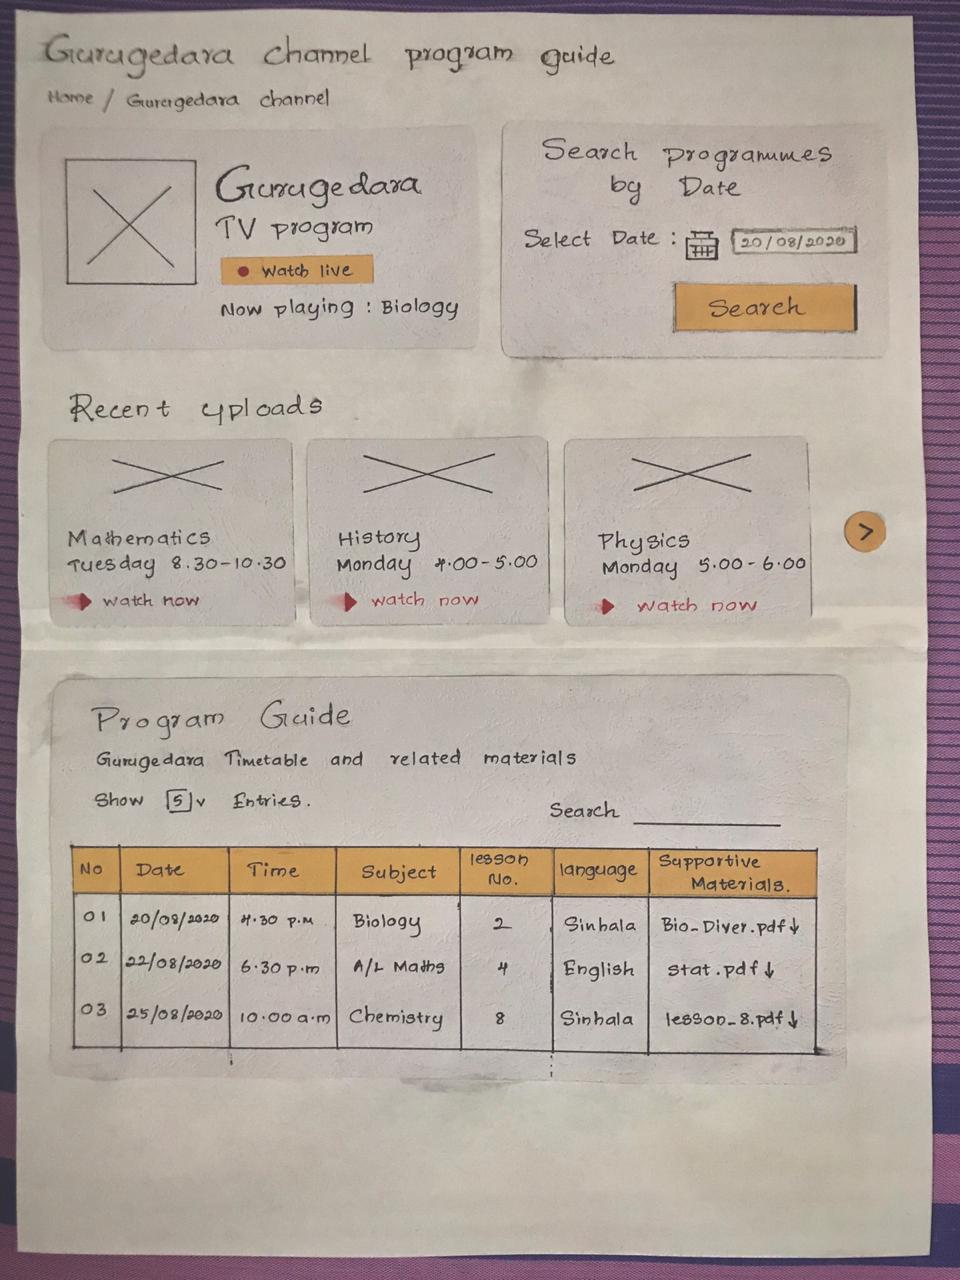 Gurugedara channel program guide
Home / Gurugedara channel
Gurugedara
TV program
Watch live
Now playing : Biology
Search programmes
by Date
Select Date : 20/08/2020
Search
Recent uploads
Mathematics
Tuesday 8.30-10.30
watch now
History
Monday 4.00-5.00
watch now
Physics
Monday 5.00-6.00
watch now
>
Program Guide
Gurugedara Timetable and related materials
Show 5 v Entries.
Search
No Date Time Subject lesson No. language Supportive Materials.
01 20/08/2020 4.30 P.M Biology 2 Sinhala Bio-Diver.pdf↓
02 22/08/2020 6.30 p.m A/L Maths 4 English stat.pdf↓
03 25/08/2020 10.00 a.m Chemistry 8 Sinhala lesson_8.pdf↓